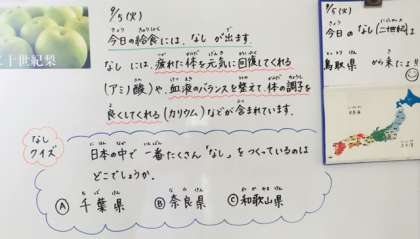 二十世紀梨
9/5(火)
今日の給食には、なし が出ます
なし には、疲れた体を元気に回復してくれる
(アミノ酸)や、血液のバランスを整えて、体の調子を
良くしてくれる(カリウム)などが含まれています.
なし
クイズ
日本の中で 一番たくさん「なし」を つくっているのは
どこでしょうか.
Ⓐ 千葉県 Ⓑ 奈良県 Ⓒ 和歌山県
9/5(火)
今日の なし(二世紀)は
鳥取県 から来たよ!!